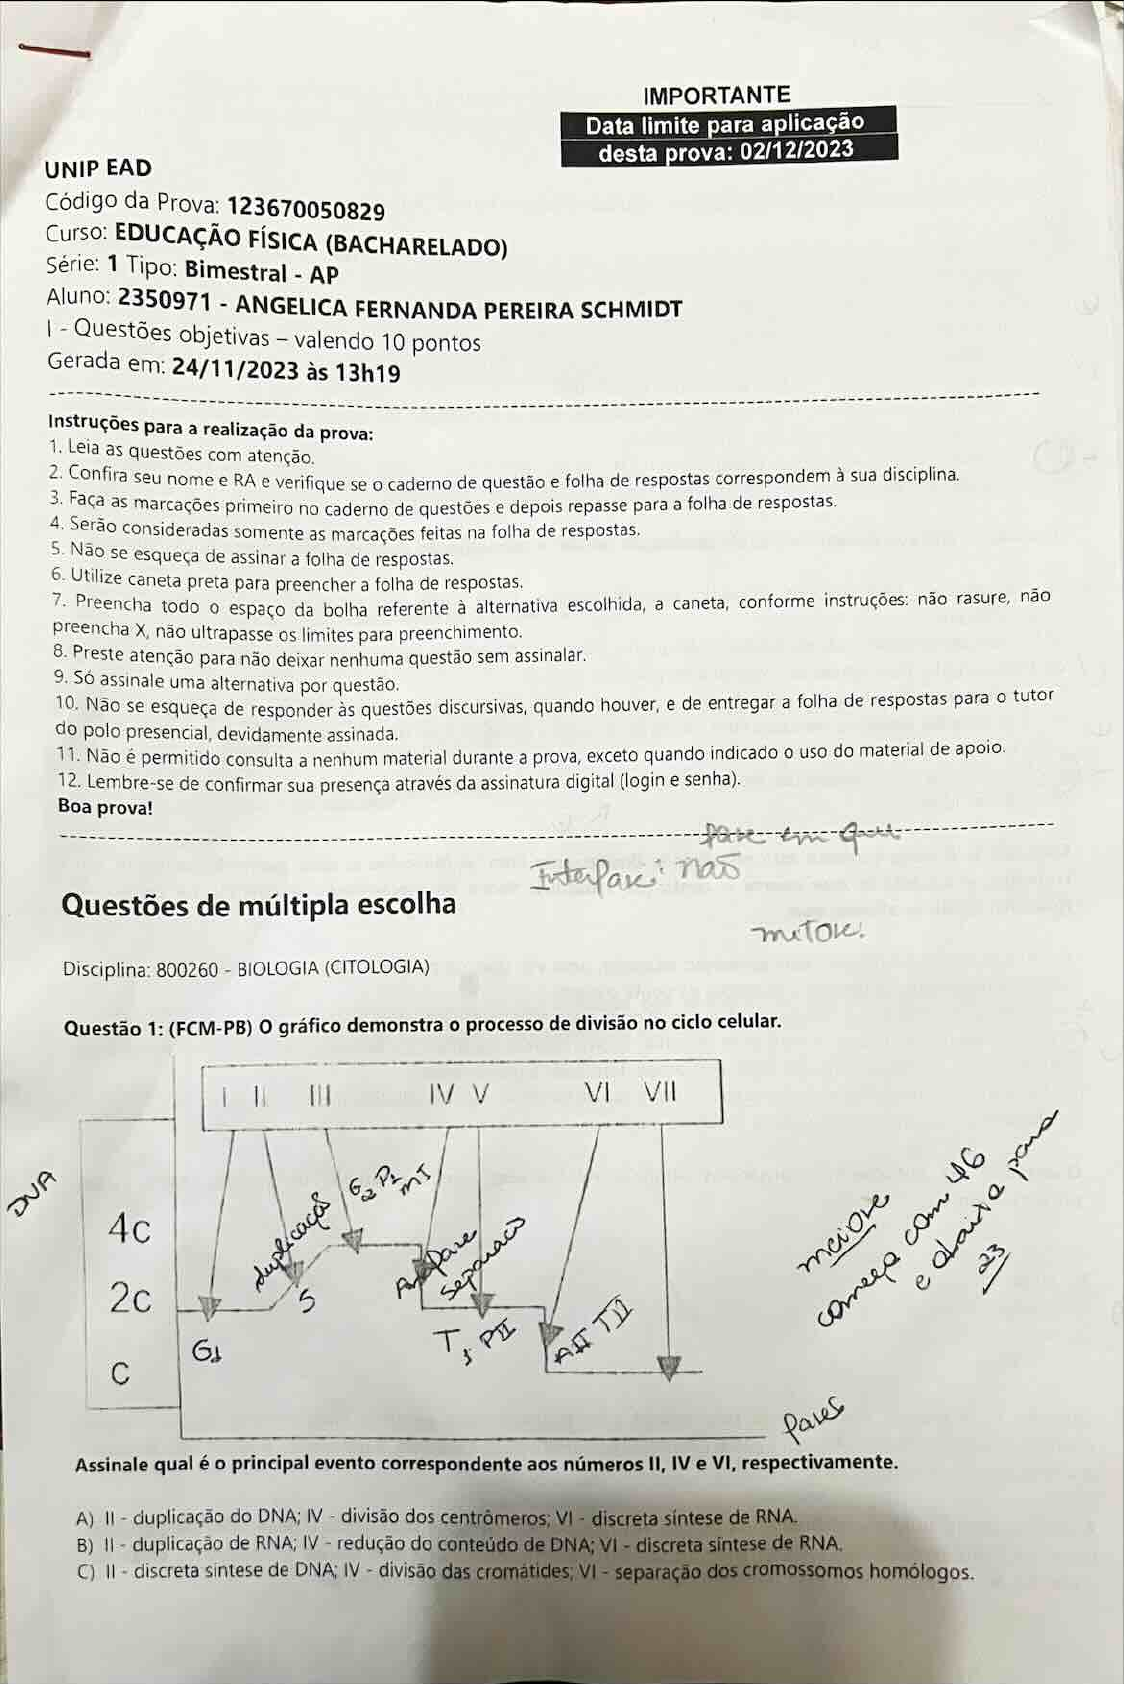 IMPORTANTE
Data limite para aplicação
desta prova: 02/12/2023
UNIP EAD
Código da Prova: 123670050829
Curso: EDUCAÇÃO FÍSICA (BACHARELADO)
Série: 1 Tipo: Bimestral - AP
Aluno: 2350971 - ANGELICA FERNANDA PEREIRA SCHMIDT
I - Questões objetivas – valendo 10 pontos
Gerada em: 24/11/2023 às 13h19
Instruções para a realização da prova:
1. Leia as questões com atenção.
2. Confira seu nome e RA e verifique se o caderno de questão e folha de respostas correspondem à sua disciplina.
3. Faça as marcações primeiro no caderno de questões e depois repasse para a folha de respostas.
4. Serão consideradas somente as marcações feitas na folha de respostas.
5. Não se esqueça de assinar a folha de respostas.
6. Utilize caneta preta para preencher a folha de respostas.
7. Preencha todo o espaço da bolha referente à alternativa escolhida, a caneta, conforme instruções: não rasure, não
preencha X, não ultrapasse os limites para preenchimento.
8. Preste atenção para não deixar nenhuma questão sem assinalar.
9. Só assinale uma alternativa por questão.
10. Não se esqueça de responder às questões discursivas, quando houver, e de entregar a folha de respostas para o tutor
do polo presencial, devidamente assinada.
11. Não é permitido consulta a nenhum material durante a prova, exceto quando indicado o uso do material de apoio.
12. Lembre-se de confirmar sua presença através da assinatura digital (login e senha).
Boa prova!
fase em que
Interfase: não
Questões de múltipla escolha
Disciplina: 800260 - BIOLOGIA (CITOLOGIA)
Questão 1: (FCM-PB) O gráfico demonstra o processo de divisão no ciclo celular.
I II III IV V VI VII
DNA
G2 P1
MI
duplicação
4c
Anafase
separação
meiose
começa com 46
e abaixa para
23
2c
S
G1
T1 PII
AII TII
C
Pares
Assinale qual é o principal evento correspondente aos números II, IV e VI, respectivamente.
A) II - duplicação do DNA; IV - divisão dos centrômeros; VI - discreta síntese de RNA.
B) II - duplicação de RNA; IV - redução do conteúdo de DNA; VI - discreta síntese de RNA.
C) II - discreta síntese de DNA; IV - divisão das cromátides; VI - separação dos cromossomos homólogos.